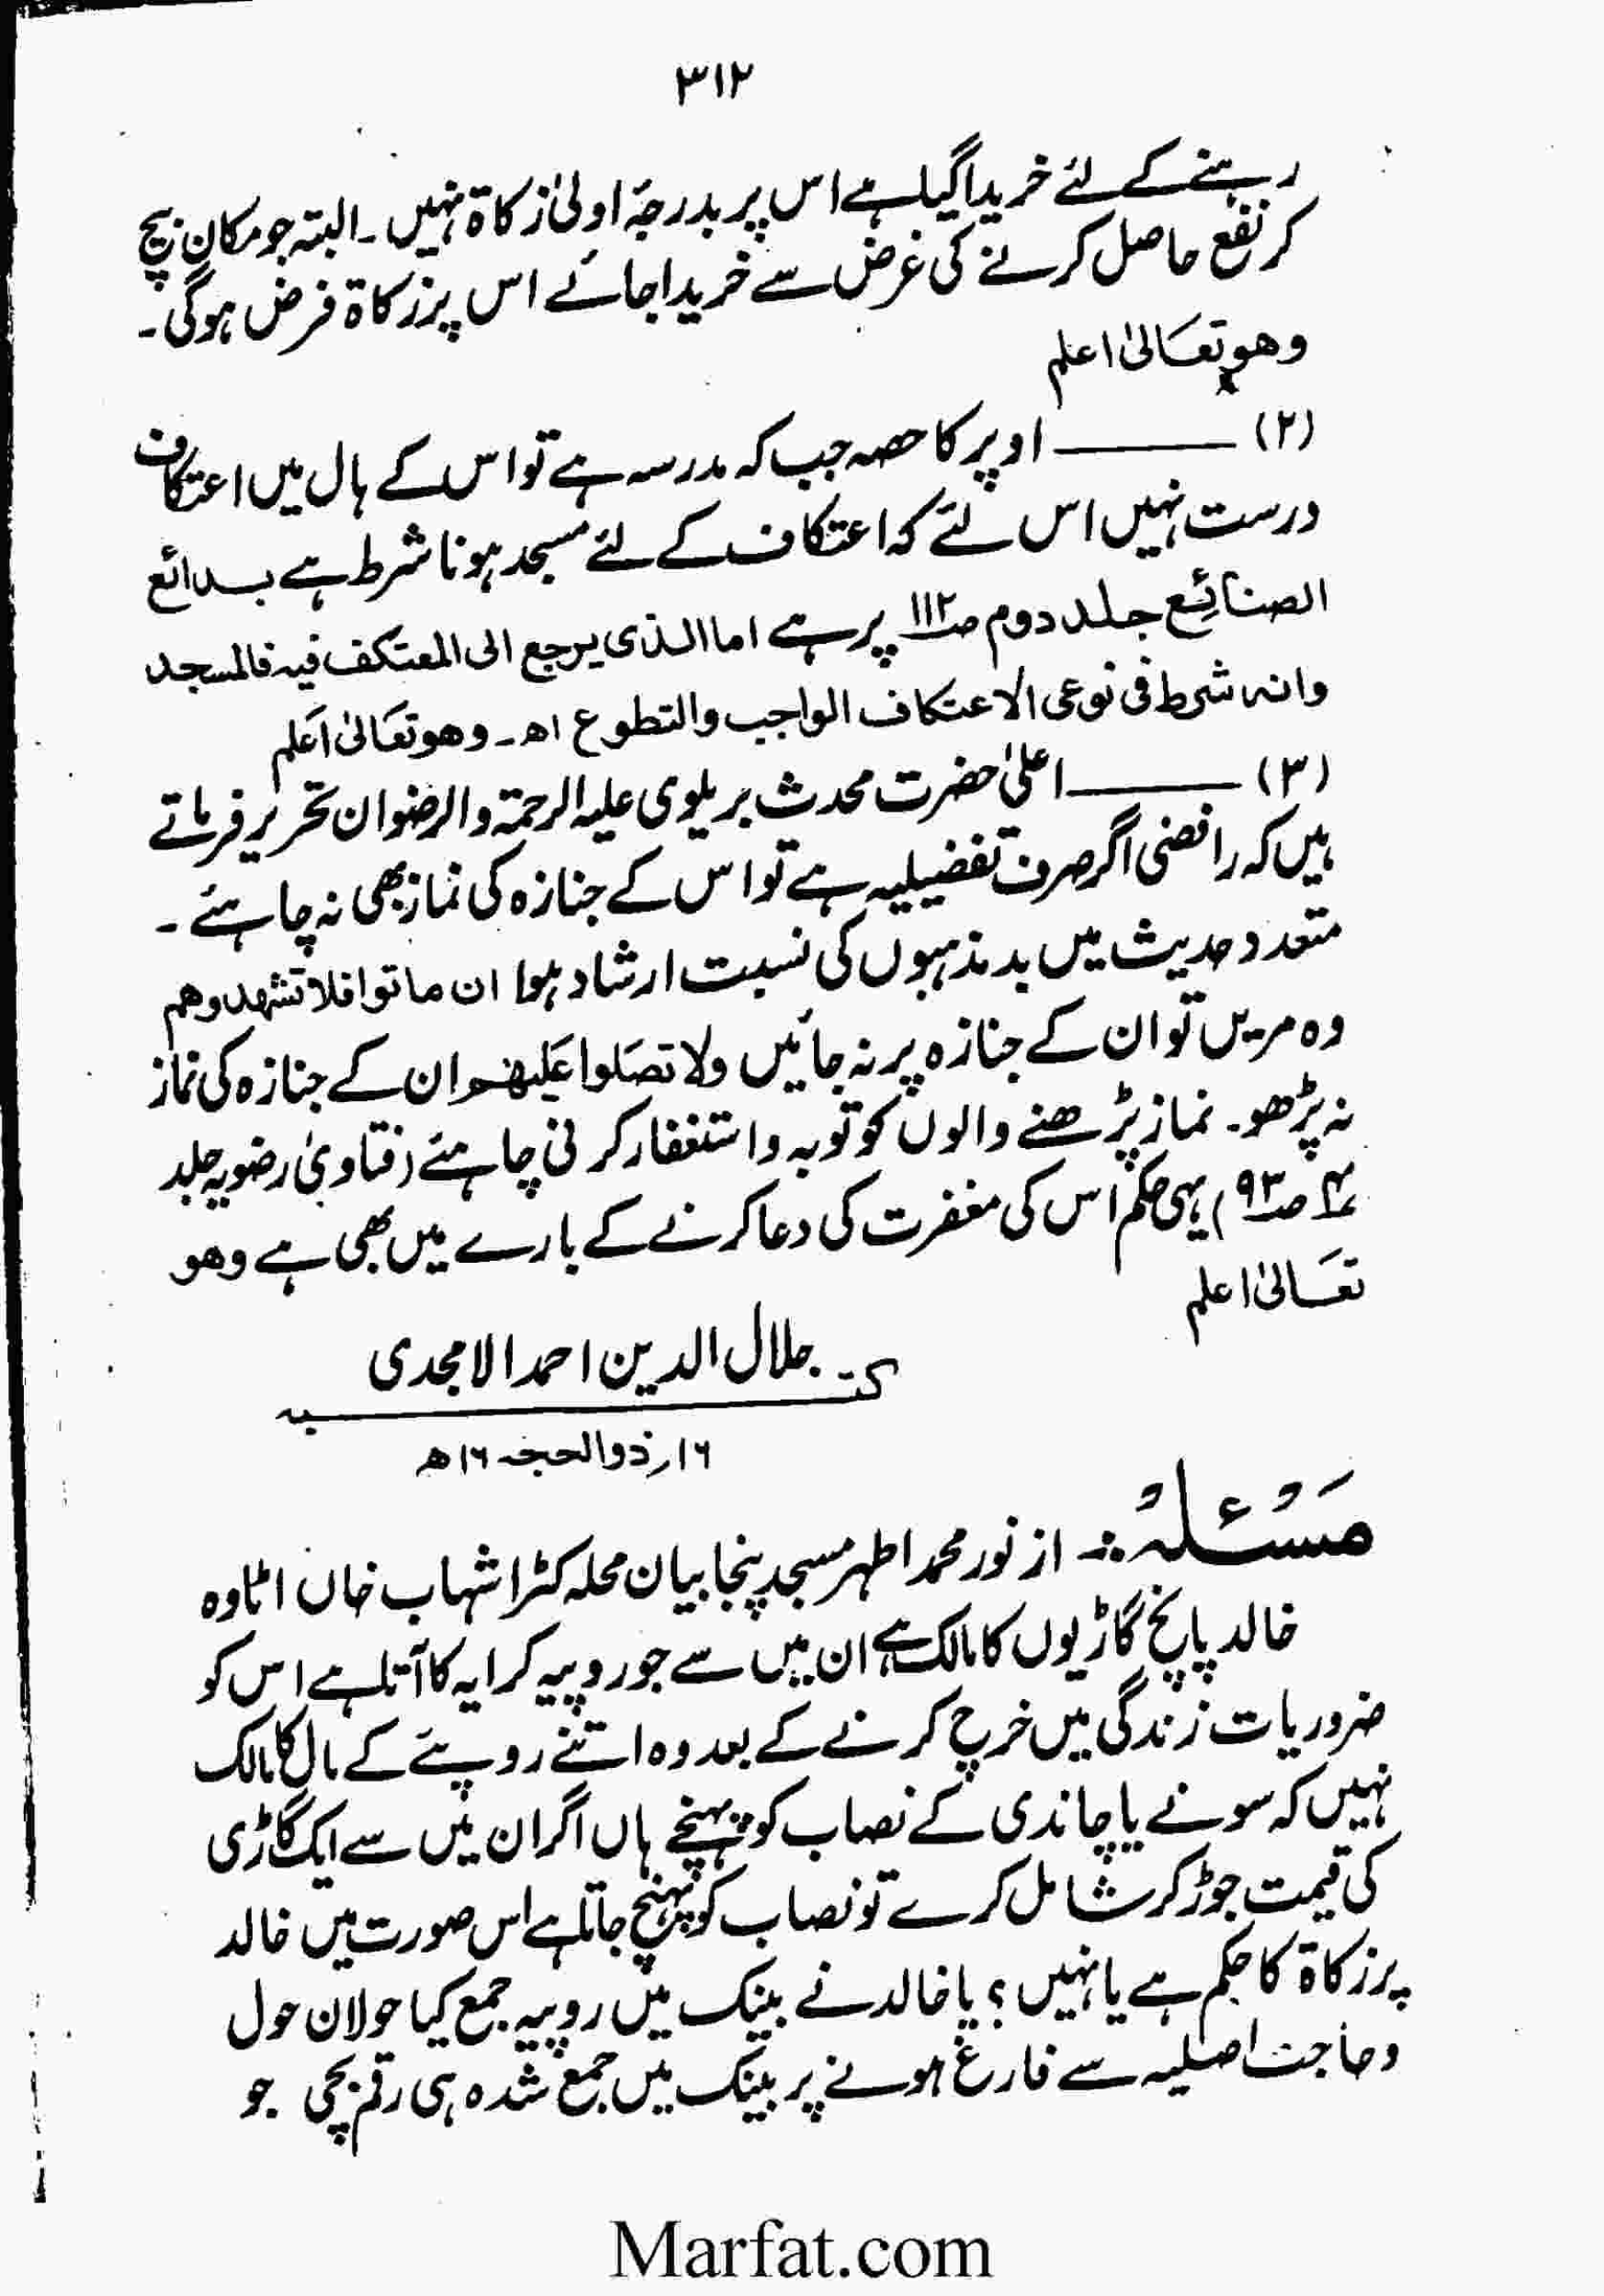 ۳۱۲
رہنے کے لئے خریدا گیا ہے اس پر بدرجۂ اولیٰ زکاۃ نہیں۔ البتہ جو مکان بیچ
کر نفع حاصل کرنے کی غرض سے خریدا جائے اس پر زکاۃ فرض ہوگی۔
وھو تعالیٰ اعلم
(۲) ——— اوپر کا حصہ جب کہ مدرسہ ہے تو اس کے ہال میں اعتکاف
درست نہیں اس لئے کہ اعتکاف کے لئے مسجد ہونا شرط ہے بدائع
الصنائع جلد دوم صـ۱۱۲ پر ہے اما الذی یرجع الی المعتکف فیہ فالمسجد
وانہ شرط فی نوعی الاعتکاف الواجب والتطوع اھ۔ وھو تعالیٰ اعلم
(۳) ——— اعلیٰ حضرت محدث بریلوی علیہ الرحمۃ والرضوان تحریر فرماتے
ہیں کہ رافضی اگر صرف تفضیلیہ ہے تو اس کے جنازہ کی نماز بھی نہ چاہئے۔
متعدد حدیث میں بدمذہبوں کی نسبت ارشاد ہوا ان ماتوا فلا تشھدوھم
وہ مریں تو ان کے جنازہ پر نہ جائیں ولا تصلوا علیھم ان کے جنازہ کی نماز
نہ پڑھو۔ نماز پڑھنے والوں کو توبہ واستغفار کرنی چاہئے (فتاویٰ رضویہ جلد
۴ صـ۹۳) یہی حکم اس کی مغفرت کی دعا کرنے کے بارے میں بھی ہے وھو
تعالیٰ اعلم
کتبہ جلال الدین احمد الامجدی
۱۶؍ ذوالحجہ ۱۶ھ
مَسْئلہُ:۔ از نور محمد اطہر مسجد پنجابیان محلہ کٹرا شہاب خاں اٹاوہ
خالد پانچ گاڑیوں کا مالک ہے ان میں سے جو روپیہ کرایہ کا آتا ہے اس کو
ضروریات زندگی میں خرچ کرنے کے بعد وہ اتنے روپئے کے مال کا مالک
نہیں کہ سونے یا چاندی کے نصاب کو پہنچے ہاں اگر ان میں سے ایک گاڑی
کی قیمت جوڑ کر شامل کرے تو نصاب کو پہنچ جاتا ہے اس صورت میں خالد
پر زکاۃ کا حکم ہے یا نہیں؟ یا خالد نے بینک میں روپیہ جمع کیا حولان حول
وحاجت اصلیہ سے فارغ ہونے پر بینک میں جمع شدہ ہی رقم بچی جو
Marfat.com